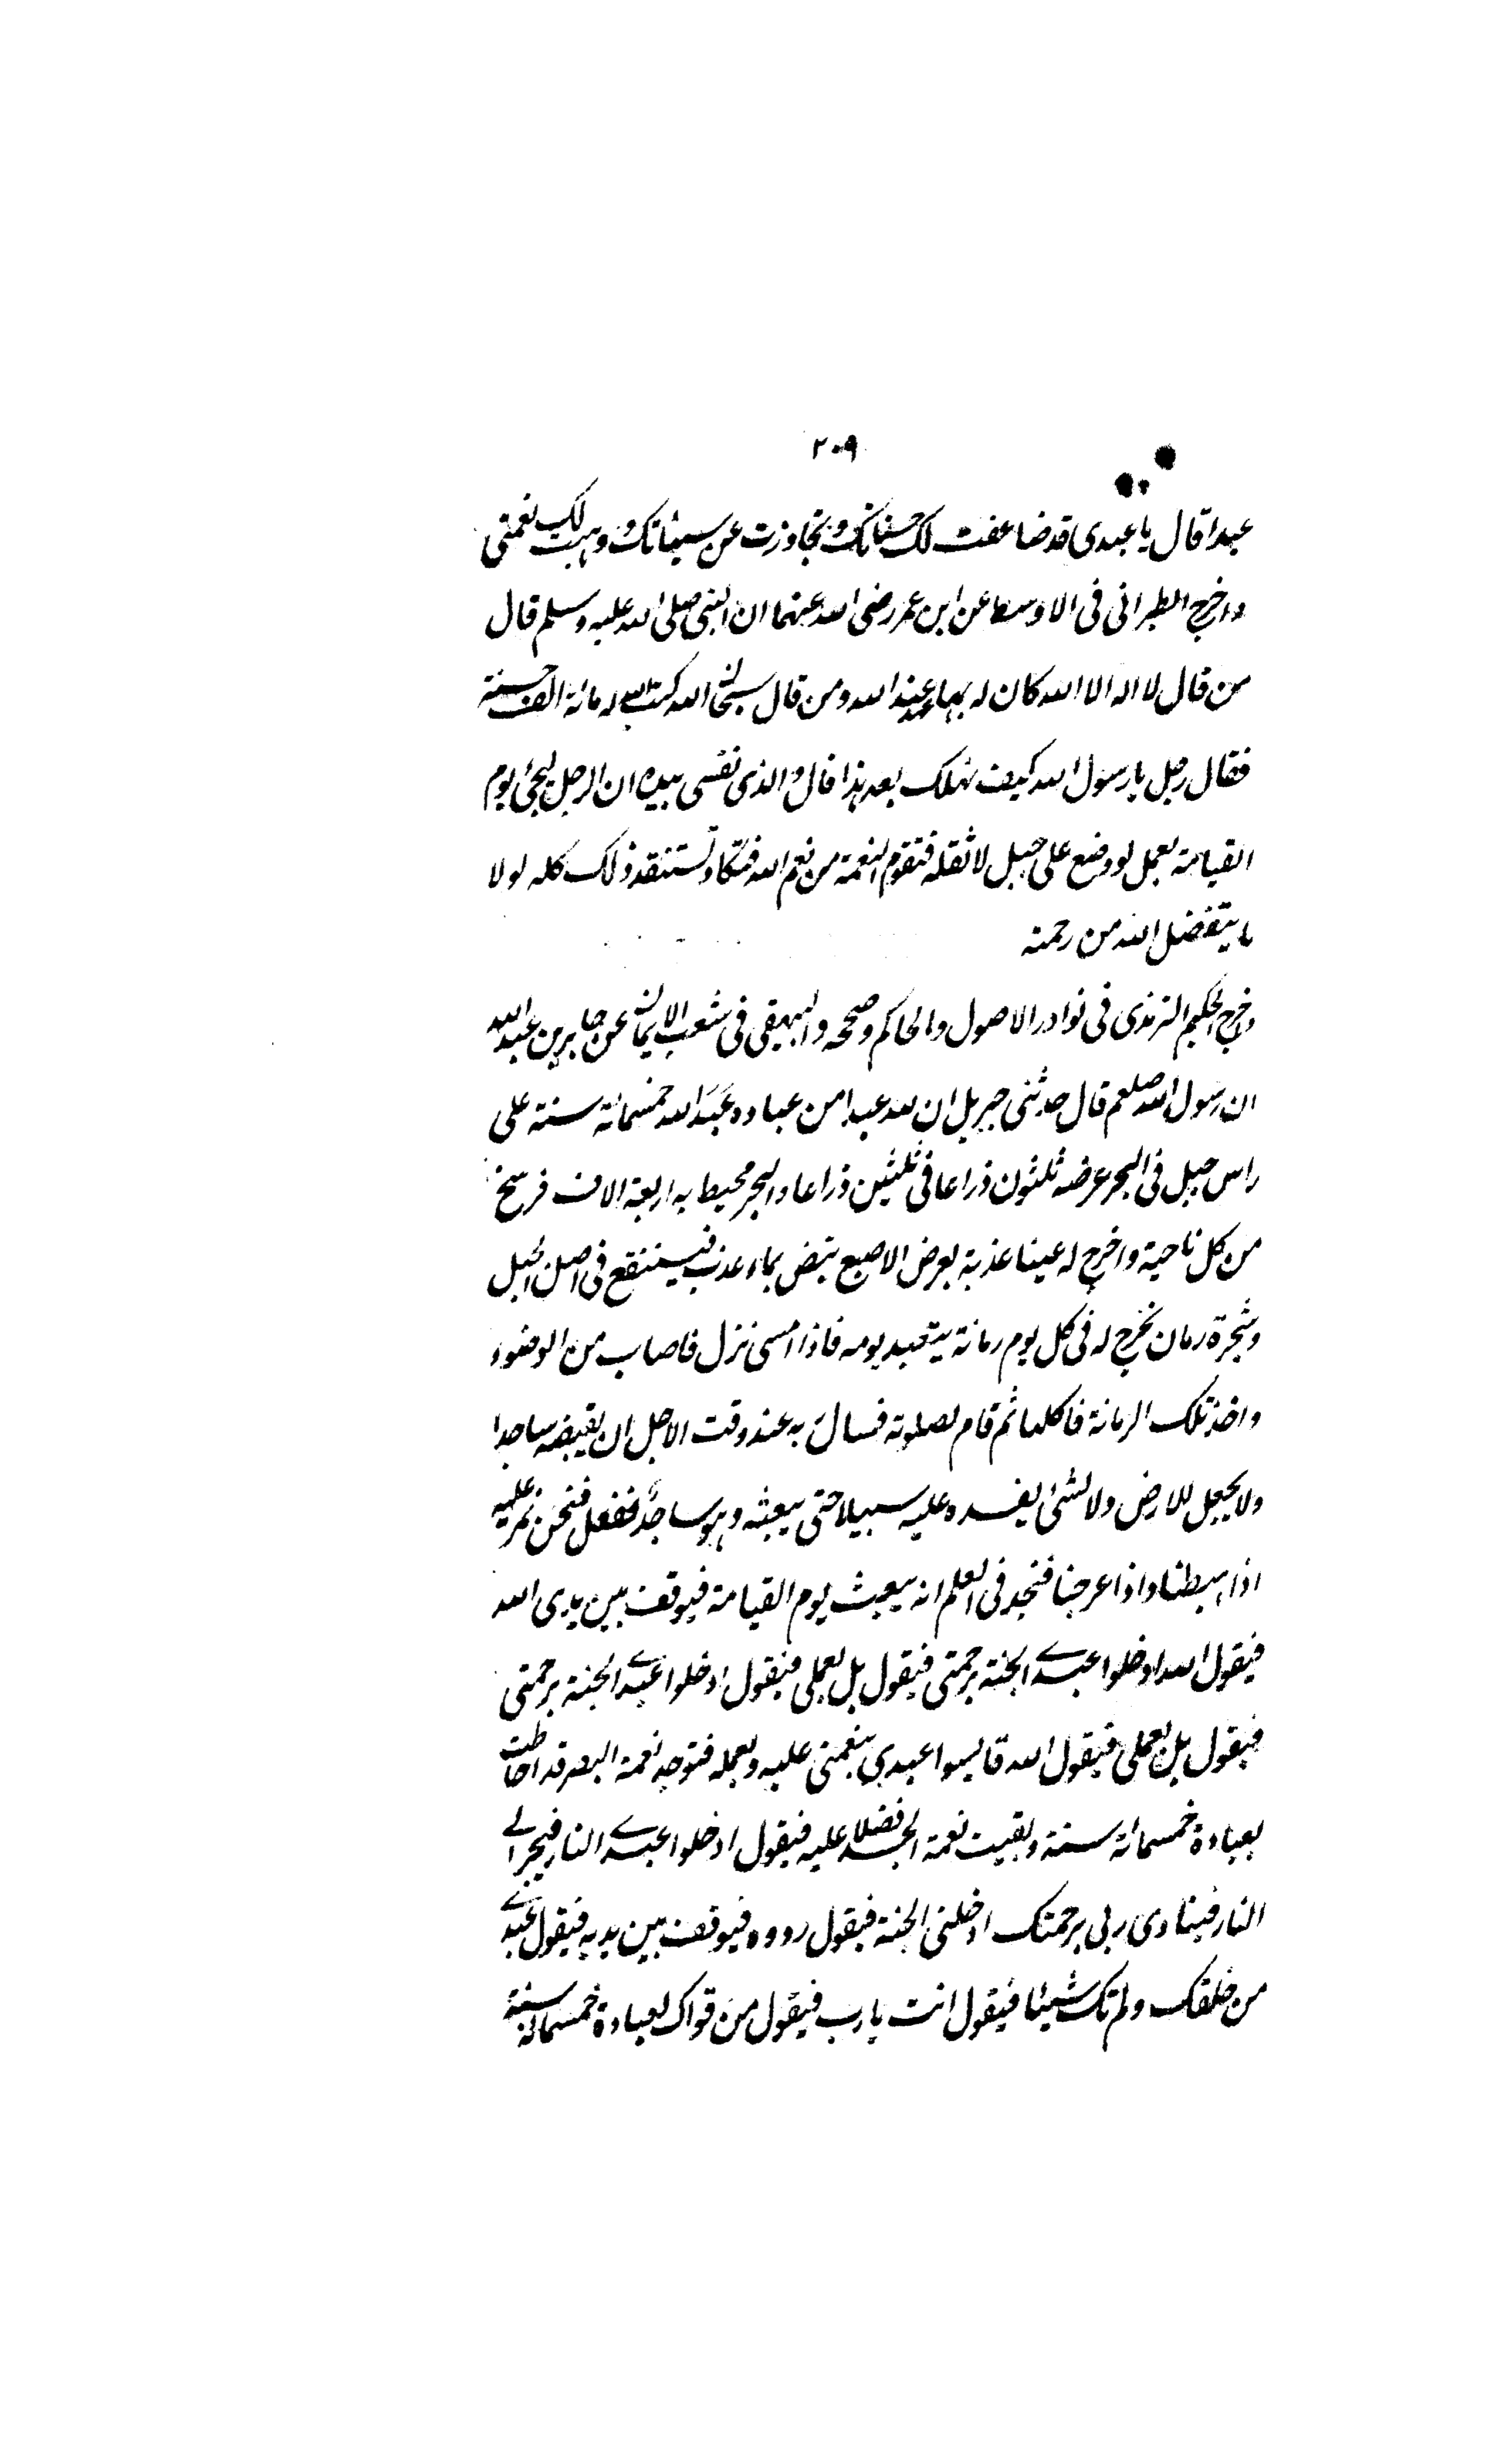 ٢٠٩
عبدا قال يا عبدى قد ضاعفت لك حسناتك وتجاوزت عن سيئاتك ووهبت لك نعمتى
واخرج الطبرانى فى الاوسط عن ابن عمر رضى الله عنهما ان النبى صلى الله عليه وسلم قال
من قال لا اله الا الله كان له بها عهد عند الله ومن قال سبحان الله كتب له مائة الف حسنة
فقال رجل يا رسول الله كيف نهلك بعد هذا قال والذى نفسى بيده ان الرجل ليجئ يوم
القيامة بعمل لو وضع على جبل لاثقله فتقوم النعمة من نعم الله فتكاد تستنفد ذلك كله لولا
ما يتفضل الله من رحمته
واخرج الحكيم الترمذى فى نوادر الاصول والحاكم وصححه والبيهقى فى شعب الايمان عن جابر بن عبد الله
ان رسول الله صلعم قال حدثنى جبريل ان لله عبدا من عباده عَبَدَ الله خمسمائة سنة على
راس جبل فى البحر عرضه ثلثون ذراعا فى ثلثين ذراعا والبحر محيط به اربعة الاف فرسخ
من كل ناحية واخرج له عينا عذبة بعرض الاصبع تبض بماء عذب فيستنقع فى اصل الجبل
وشجرة رمان تخرج له فى كل يوم رمانة يتعبد يومه فاذا امسى نزل فاصاب من الوضوء
واخذ تلك الرمانة فاكلها ثم قام لصلوته فسال ربه عند وقت الاجل ان يقبضه ساجدا
ولا يجعل للارض ولا لشئ يفسده عليه سبيلا حتى يبعثه وهو ساجد ففعل فنحن نمر عليه
اذا هبطنا واذا عرجنا فنجد فى العلم انه يبعث يوم القيامة فيوقف بين يدى الله
فيقول الله ادخلوا عبدى الجنة برحمتى فيقول بل بعملى فيقول ادخلوا عبدى الجنة برحمتى
فيقول بل بعملى فيقول الله قايسوا عبدى بنعمتى عليه وبعمله فتوجد نعمة البصر قد احاطت
بعبادة خمسمائة سنة وبقيت نعمة الجسد فضلا عليه فيقول ادخلوا عبدى النار فيجر الى
النار فينادى ربى برحمتك ادخلنى الجنة فيقول ردوه فيوقف بين يديه فيقول عبدى
من خلقك ولم تك شيئا فيقول انت يا رب فيقول من قواك لعبادة خمسمائة سنة